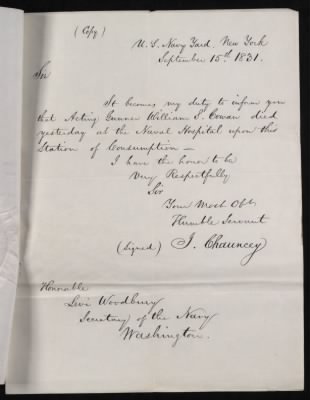 (Copy)
U. S. Navy Yard, New York
September 15th 1831.
Sir
It becomes my duty to inform you
that Acting Gunner William S. Cowan died
yesterday at the Naval Hospital upon this
Station of Consumption —
I have the honor to be
Very Respectfully
Sir
Your Most Obt.
Humble Servant
(Signed) I. Chauncey
Honorable
Levi Woodbury
Secretary of the Navy
Washington.